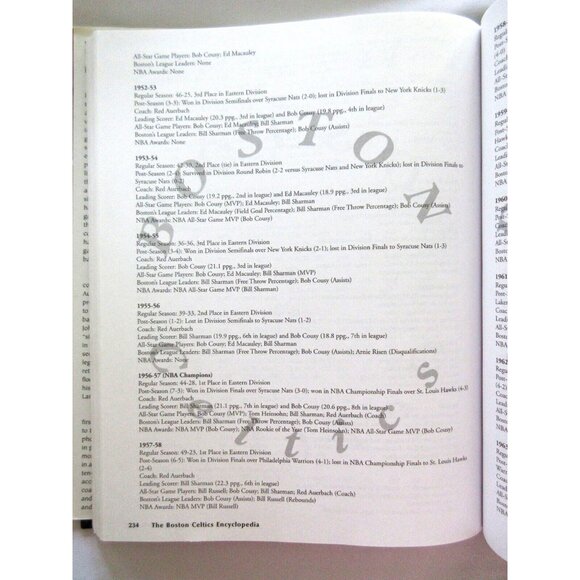 All-Star Game Players: Bob Cousy; Ed Macauley
Boston's League Leaders: None
NBA Awards: None
1952-53
Regular Season: 46-25, 3rd Place in Eastern Division
Post-Season (3-3): Won in Division Semifinals over Syracuse Nats (2-0); lost in Division Finals to New York Knicks (1-3)
Coach: Red Auerbach
Leading Scorer: Ed Macauley (20.3 ppg., 3rd in league) and Bob Cousy (19.8 ppg., 4th in league)
All-Star Game Players: Bob Cousy; Ed Macauley; Bill Sharman
Boston's League Leaders: Bill Sharman (Free Throw Percentage); Bob Cousy (Assists)
NBA Awards: None
1953-54
Regular Season: 42-30, 2nd Place (tie) in Eastern Division
Post-Season (2-4): Survived in Division Round Robin (2-2 versus Syracuse Nats and New York Knicks); lost in Division Finals to
Syracuse Nats
Coach: Red Auerbach
Leading Scorer: Bob Cousy (19.2 ppg., 2nd in league) and Ed Macauley (18.9 ppg., 3rd in league)
All-Star Game Players: Bob Cousy (MVP); Ed Macauley; Bill Sharman
Boston's League Leaders: Ed Macauley (Field Goal Percentage); Bill Sharman (Free Throw Percentage); Bob Cousy (Assists)
NBA Awards: NBA All-Star Game MVP (Bob Cousy)
1954-55
Regular Season: 36-36, 3rd Place in Eastern Division
Post-Season (3-4): Won in Division Semifinals over New York Knicks (2-1); lost in Division Finals to Syracuse Nats (1-3)
Coach: Red Auerbach
Leading Scorer: Bob Cousy (21.1 ppg., 3rd in league)
All-Star Game Players: Bob Cousy; Ed Macauley; Bill Sharman (MVP)
Boston's League Leaders: Bill Sharman (Free Throw Percentage); Bob Cousy (Assists)
NBA Awards: NBA All-Star Game MVP (Bill Sharman)
1955-56
Regular Season: 39-33, 2nd Place in Eastern Division
Post-Season (1-2): Lost in Division Semifinals to Syracuse Nats (1-2)
Coach: Red Auerbach
Leading Scorer: Bill Sharman (19.9 ppg., 6th in league) and Bob Cousy (18.8 ppg., 7th in league)
All-Star Game Players: Bob Cousy; Ed Macauley; Bill Sharman
Boston's League Leaders: Bill Sharman (Free Throw Percentage); Bob Cousy (Assists); Arnie Risen (Disqualifications)
1956-57 (NBA Champions)
Regular Season: 44-28, 1st Place in Eastern Division
Post-Season (7-3): Won in Division Finals over Syracuse Nats (3-0); won in NBA Championship Finals over St. Louis Hawks (4-3)
Coach: Red Auerbach
Leading Scorer: Bill Sharman (21.1 ppg., 7th in league) and Bob Cousy (20.6 ppg., 8th in league)
All-Star Game Players: Bob Cousy (MVP); Tom Heinsohn; Bill Sharman; Red Auerbach (Coach)
Boston's League Leaders: Bill Sharman (Free Throw Percentage); Bob Cousy (Assists)
NBA Awards: NBA MVP (Bob Cousy); NBA Rookie of the Year (Tom Heinsohn); NBA All-Star Game MVP (Bob Cousy)
1957-58
Regular Season: 49-23, 1st Place in Eastern Division
Post-Season (6-5): Won in Division Finals over Philadelphia Warriors (4-1); lost in NBA Championship Finals to St. Louis Hawks
(2-4)
Coach: Red Auerbach
Leading Scorer: Bill Sharman (22.3 ppg., 6th in league)
All-Star Game Players: Bill Russell; Bob Cousy; Bill Sharman; Red Auerbach (Coach)
Boston's League Leaders: Bob Cousy (Assists); Bill Russell (Rebounds)
NBA Awards: NBA MVP (Bill Russell)
234 The Boston Celtics Encyclopedia
BOSTON
Celtics